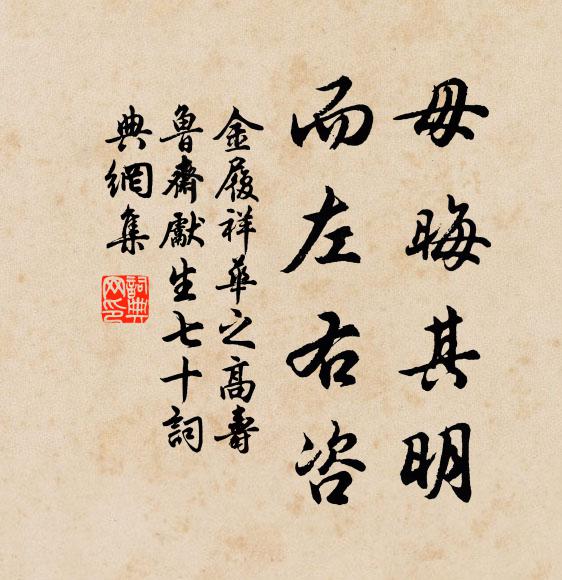 毋晦其明
而左右咨
金履祥華之高壽
魯齋獻生七十詞
典網集
詞典網印